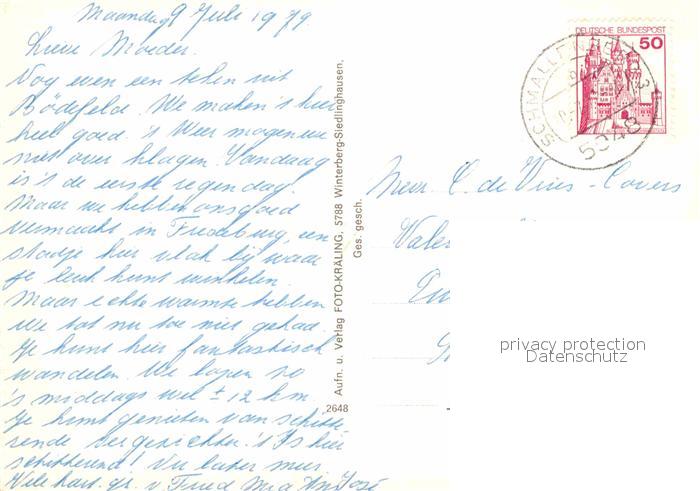 Maandag 9 Juli 1979
Lieve Moeder.
Nog even een teken uit
Bödefeld. We maken 't hier
heel goed. 't Weer mogen we
niet over klagen. Vandaag
is 't de eerste regendag.
Maar we hebben ons goed
vermaakt in Fredeburg, een
stadje hier vlak bij waar
je leuk kunt winkelen.
Maar echte warmte hebben
we tot nu toe niet gehad.
Je kunt hier fantastisch
wandelen. We lopen zo
's middags wel ± 12 km.
Je kunt genieten van schitte-
rende vergezichten. 't Is hier
schitterend! Nu later meer
Vele hart. gr. v. Fried Mia José
Aufn. u. Verlag FOTO-KRÄLING, 5788 Winterberg-Siedlinghausen.
Ges. gesch.
2648
DEUTSCHE BUNDESPOST
50
SCHMALLENBERG 3
5948
Mevr. C. de Vries-Covers
privacy protection
Datenschutz